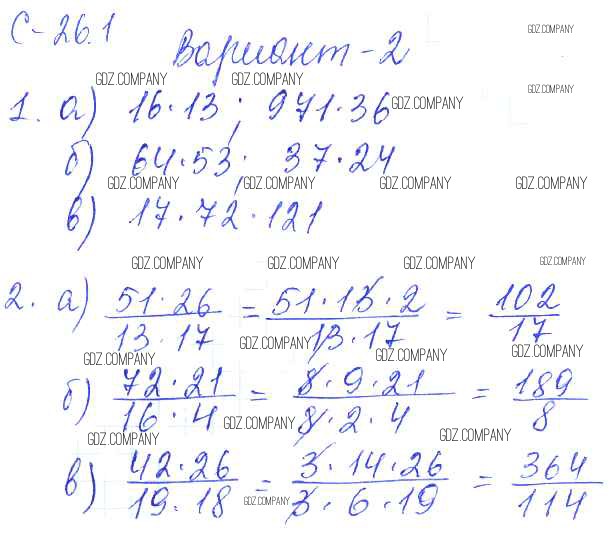 С-26.1
Вариант-2
GDZ.COMPANY
GDZ.COMPANY
GDZ.COMPANY
GDZ.COMPANY
1. а) 16·13; 971·36
GDZ.COMPANY
б) 64·53; 37·24
GDZ.COMPANY GDZ.COMPANY GDZ.COMPANY GDZ.COMPANY
в) 17·72·121
GDZ.COMPANY GDZ.COMPANY GDZ.COMPANY GDZ.COMPANY
2. а) 51·26 / 13·17 = 51·13·2 / 13·17 = 102 / 17
GDZ.COMPANY GDZ.COMPANY GDZ.COMPANY GDZ.COMPANY
б) 72·21 / 16·4 = 8·9·21 / 8·2·4 = 189 / 8
GDZ.COMPANY GDZ.COMPANY GDZ.COMPANY
в) 42·26 / 19·18 = 3·14·26 / 3·6·19 = 364 / 114
GDZ.COMPANY